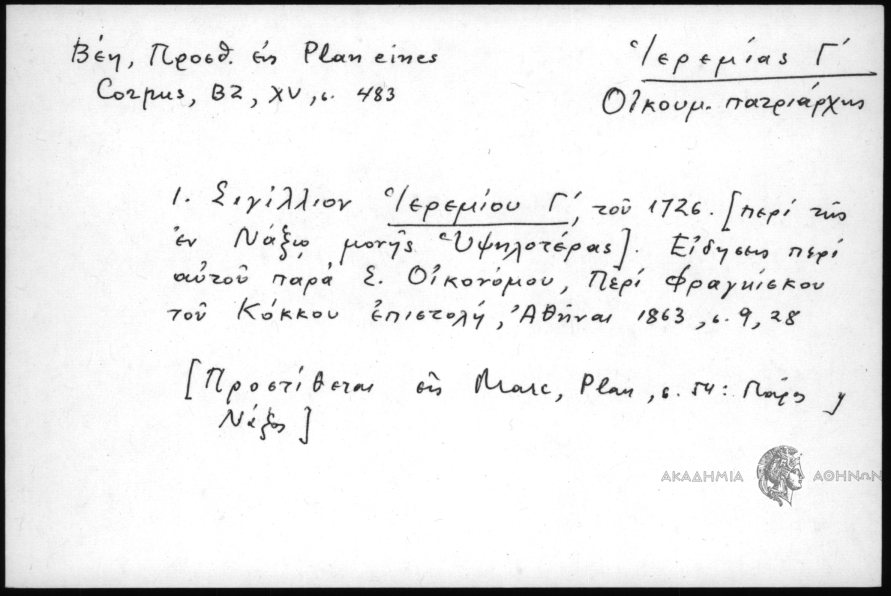 Βέη, Προσθ. εἰς Plan eines
Corpus, BZ, XV, σ. 483
Ἱερεμίας Γ΄
Οἰκουμ. πατριάρχης
1. Σιγίλλιον Ἱερεμίου Γ΄, τοῦ 1726. [περί τῆς
ἐν Νάξῳ μονῆς Ὑψηλοτέρας]. Εἴδησις περί
αὐτοῦ παρά Σ. Οἰκονόμου, Περί Φραγκίσκου
τοῦ Κόκκου ἐπιστολή, Ἀθῆναι 1863, σ. 9, 28
[Προστίθεται εἰς Marc, Plan, σ. 54: Πάρος
Νάξος]
ΑΚΑΔΗΜΙΑ ΑΘΗΝΩΝ